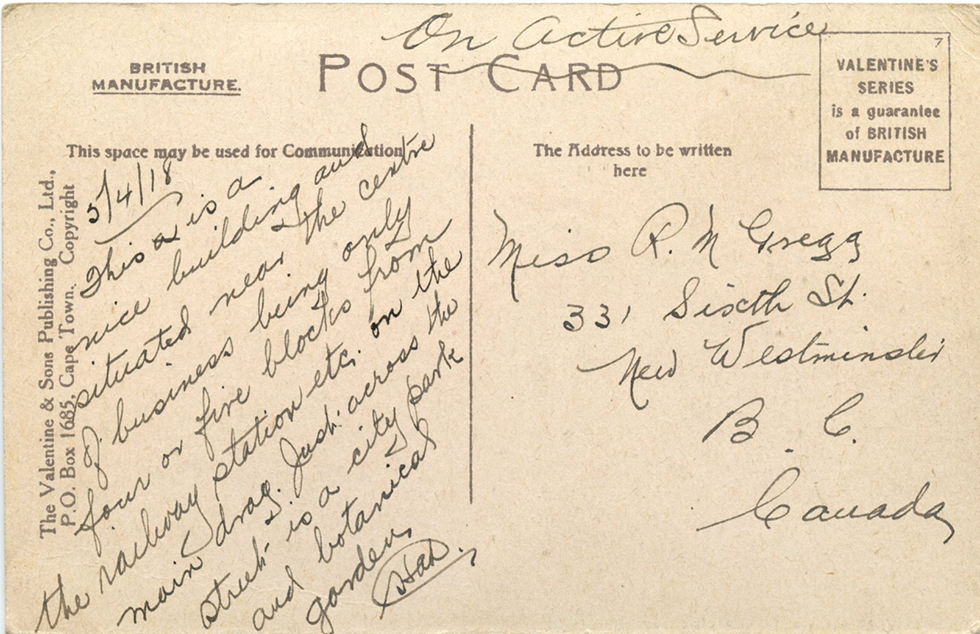 On Active Service
BRITISH
MANUFACTURE.
POST CARD
7
VALENTINE'S
SERIES
is a guarantee
of BRITISH
MANUFACTURE
This space may be used for Communication
The Address to be written
here
The Valentine & Sons Publishing Co., Ltd.,
P.O. Box 1685, Cape Town. Copyright
5/4/18
This is a
nice building and
situated near the centre
of business being only
four or five blocks from
the railway station etc. on the
main drag. Just across the
street is a city park
and botanical
garden.
Miss R. M Gregg
331 Sixth St.
New Westminster
B. C.
Canada